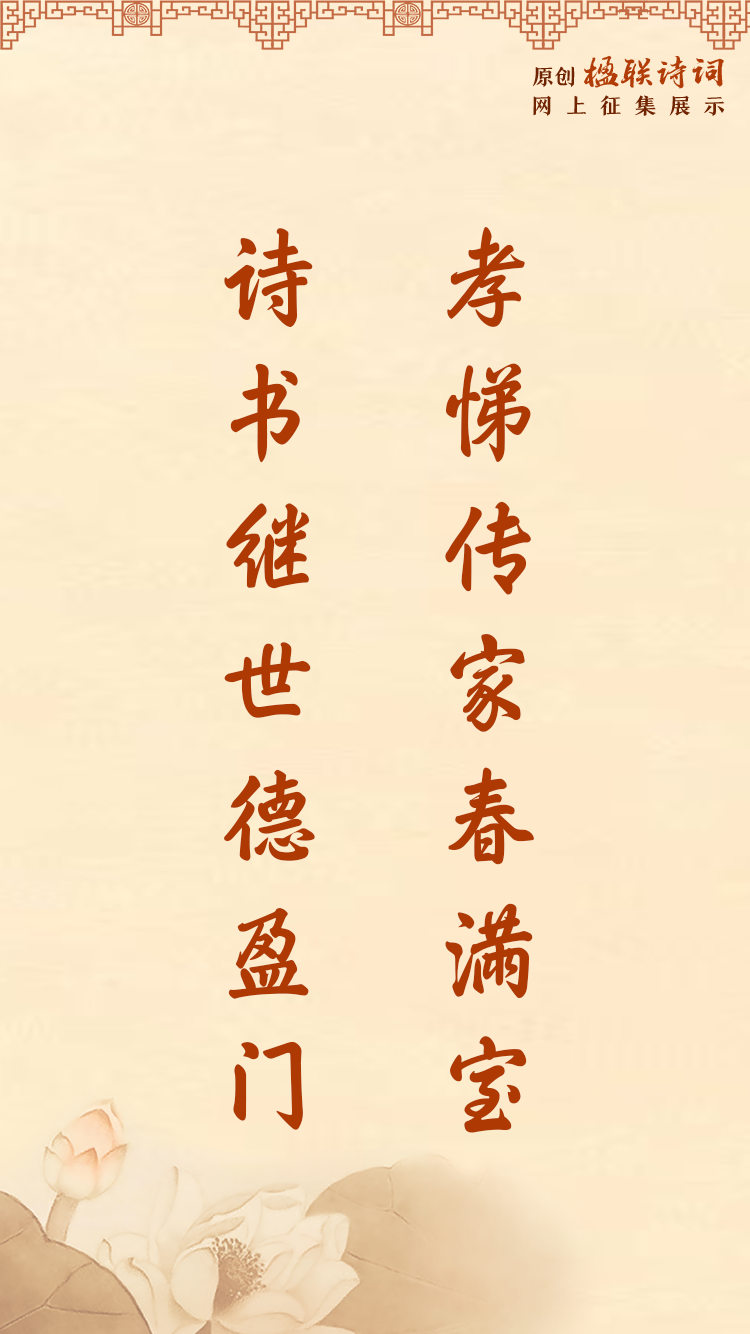 原创 楹联诗词
网上征集展示
孝悌传家春满室
诗书继世德盈门